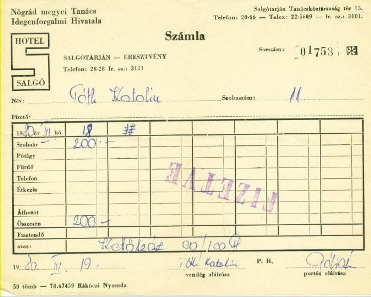 Nógrád megyei Tanács
Idegenforgalmi Hivatala
Salgótarján Tanácsköztársaság tér 15.
Telefon: 20-66 - Telex: 22-5609 - Ir. sz.: 3101.
HOTEL
SALGÓ
Számla
Sorszám: 01753
SALGÓTARJÁN — ERESZTVÉNY
Telefon: 20-28 Ir. sz.: 3121
Név: Tóth Katalin Szobaszám: 11
Fizető:
1980 év III hó 18
Szobaár 200.-
Pótágy
Fürdő
Telefon
Étkezés
FIZETVE
Áthozat
Összesen 200.-
Fizetendő
azaz: Kettőszáz 00/100 Ft
1980. III. 19. Tóth Katalin P. H.
vendég aláírása portás aláírása
50 tömb - 78.67459 Rákóczi Nyomda